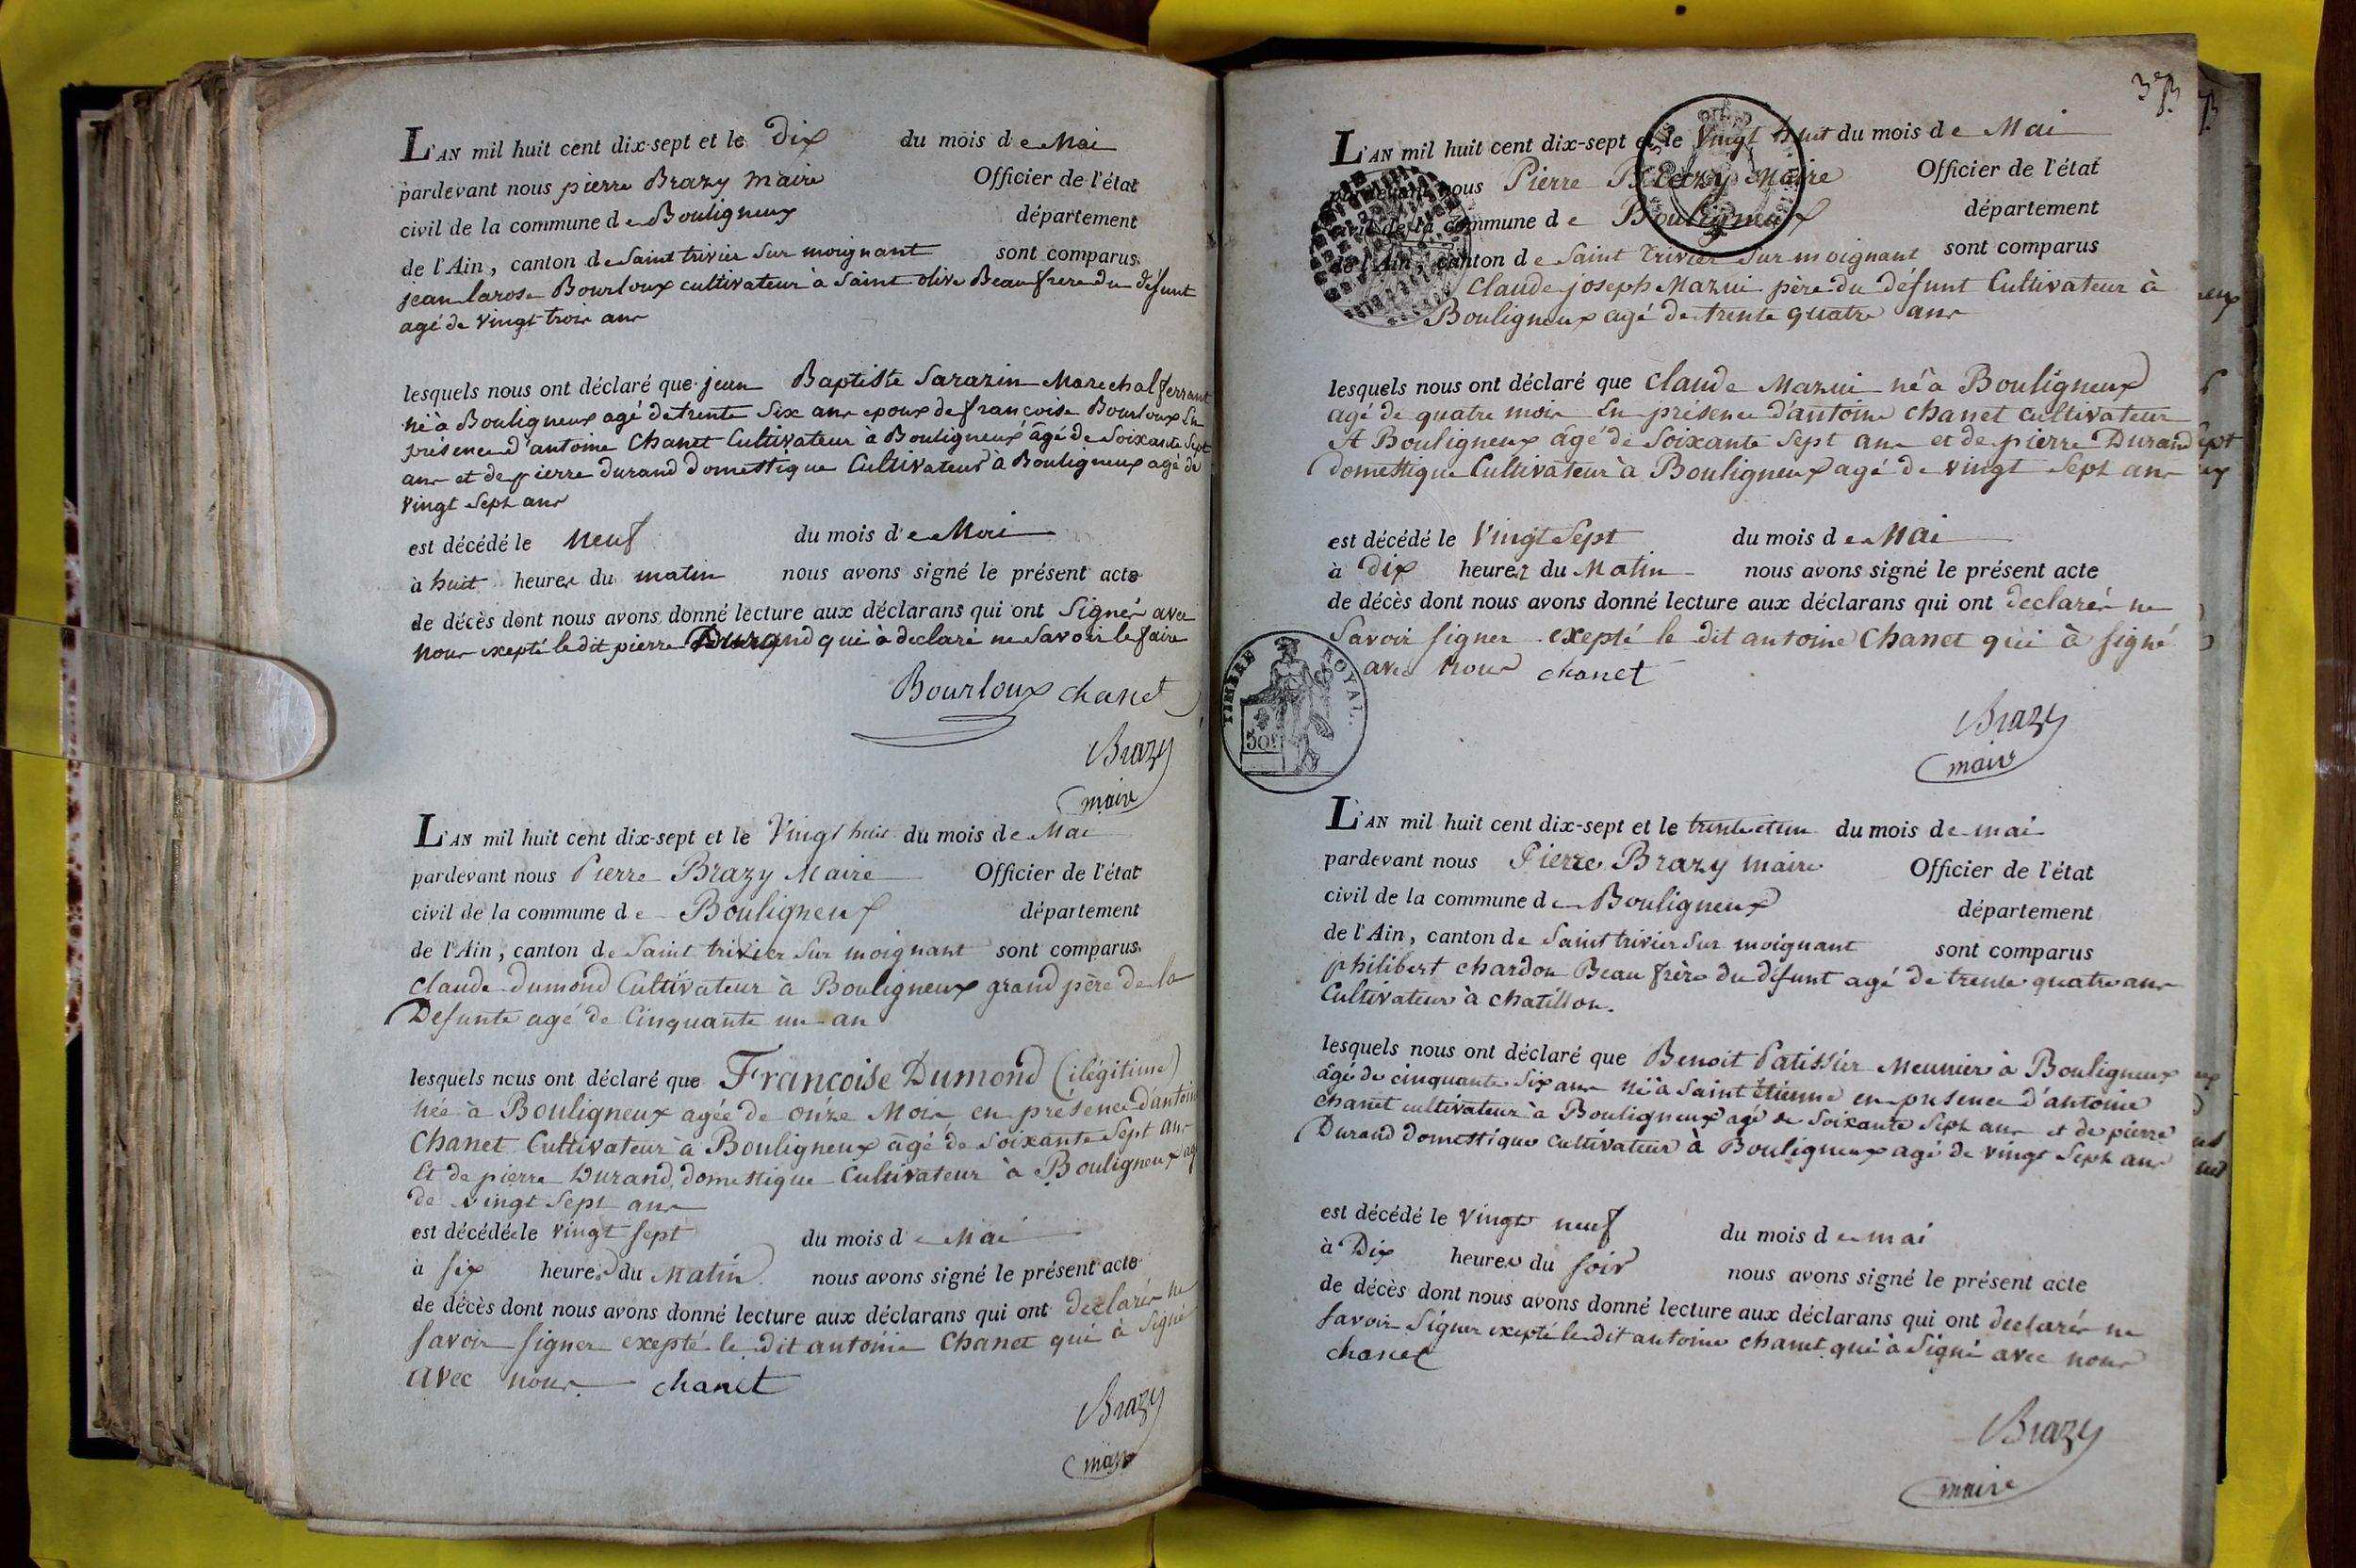 L'AN mil huit cent dix-sept et le Dix du mois de Mai
pardevant nous pierre Brazy Maire Officier de l'état
civil de la commune de Bouligneux département
de l'Ain, canton de Saint trivier sur moignant sont comparus
jean larose Bourloux cultivateur à saint olive Beaufrere du défunt
agé de vingt trois ans
lesquels nous ont déclaré que jean Baptiste Sarazin Marechal ferrant
né à Bouligneux agé de trente six ans epoux de francoise Bourloux En
présence d'antoine Chanet Cultivateur à Bouligneux âgé de Soixante Sept
ans et de pierre durand domestique Cultivateur à Bouligneux agé de
vingt Sept ans
est décédé le Neuf du mois de Mai
à huit heures du matin nous avons signé le présent acte
de décès dont nous avons donné lecture aux déclarans qui ont Signés avec
nous exepté ledit pierre Durand qui à declaré ne Savoir le faire
Bourloux chanet
Brazy
maire
L'AN mil huit cent dix-sept et le Vingt huit du mois de Mai
pardevant nous Pierre Brazy Maire Officier de l'état
civil de la commune de Bouligneux département
de l'Ain, canton de Saint trivier sur moignant sont comparus
claude dumond Cultivateur à Bouligneux grand père de la
Defunte agé de Cinquante un an
lesquels nous ont déclaré que Francoise Dumond (ilégitime)
née à Bouligneux agée de onze Mois en présence d'antoine
Chanet Cultivateur à Bouligneux âgé de Soixante Sept ans
Et de pierre Durand, domestique Cultivateur à Bouligneux agé
de vingt Sept ans
est décédée le vingt sept du mois de Mai
à six heures du Matin nous avons signé le présent acte
de décès dont nous avons donné lecture aux déclarans qui ont declarés ne
savoir signer exepté le dit antoine Chanet qui à signé
avec nous. chanet
Brazy
maire
L'AN mil huit cent dix-sept et le Vingt huit du mois de Mai
pardevant nous Pierre Brazy Maire Officier de l'état
civil de la commune de Bouligneux département
de l'Ain, canton de Saint Trivier sur moignant sont comparus
Claude joseph Mazui père du défunt Cultivateur à
Bouligneux agé de trente quatre ans
lesquels nous ont déclaré que Claude Mazui né à Bouligneux
agé de quatre mois En présence d'antoine chanet cultivateur
A Bouligneux âgé de Soixante Sept ans et de pierre Durand
domestique Cultivateur à Bouligneux agé de vingt Sept ans
est décédé le Vingt Sept du mois de Mai
à Dix heures du Matin nous avons signé le présent acte
de décès dont nous avons donné lecture aux déclarans qui ont declarés ne
Savoir signer exepté le dit antoine Chanet qui à signé
avec nous chanet
TIMBRE ROYAL.
50c
Brazy
maire
L'AN mil huit cent dix-sept et le trente et un du mois de mai
pardevant nous Pierre Brazy maire Officier de l'état
civil de la commune de Bouligneux département
de l'Ain, canton de Saint trivier sur moignant sont comparus
philibert chardon Beau frère du défunt agé de trente quatre ans
Cultivateur à chatillon.
lesquels nous ont déclaré que Benoit Patissier Meunier à Bouligneux
âgé de cinquante Six ans né à Saint Etienne en presence d'antoine
chanet cultivateur à Bouligneux agé de Soixante Sept ans et de pierre
Durand domestique cultivateur à Bouligneux agé de vingt Sept ans
est décédé le Vingt neuf du mois de mai
à Dix heures du soir nous avons signé le présent acte
de décès dont nous avons donné lecture aux déclarans qui ont declarés ne
savoir Signer exepté ledit antoine chanet qui à Signé avec nous
chanet
Brazy
maire